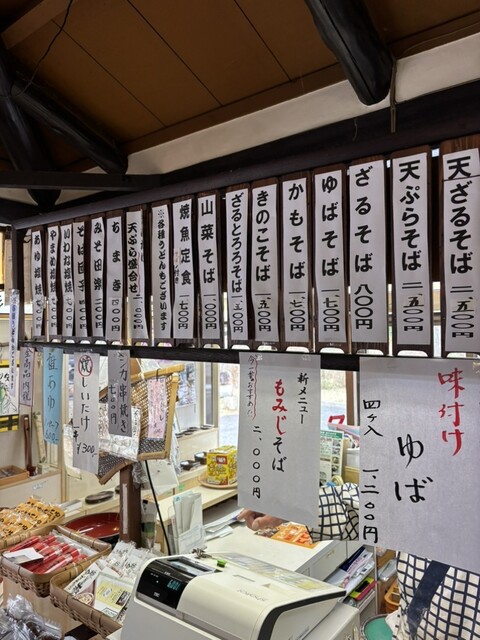 天ざるそば 一、五〇〇円
天ぷらそば 一、五〇〇円
ざるそば 八〇〇円
ゆばそば 一、七〇〇円
かもそば 一、七〇〇円
きのこそば 一、五〇〇円
ざるとろろそば
山菜そば 一、〇〇〇円
焼魚定食 一、七〇〇円
※各種うどんもございます
天ぷら盛合せ
みそ田楽
いわな塩焼
やまめ塩焼
あゆ塩焼
味付け
ゆば
四ケ入 一、二〇〇円
新メニュー
もみじそば
二、〇〇〇円
串焼き
焼
しいたけ
¥300